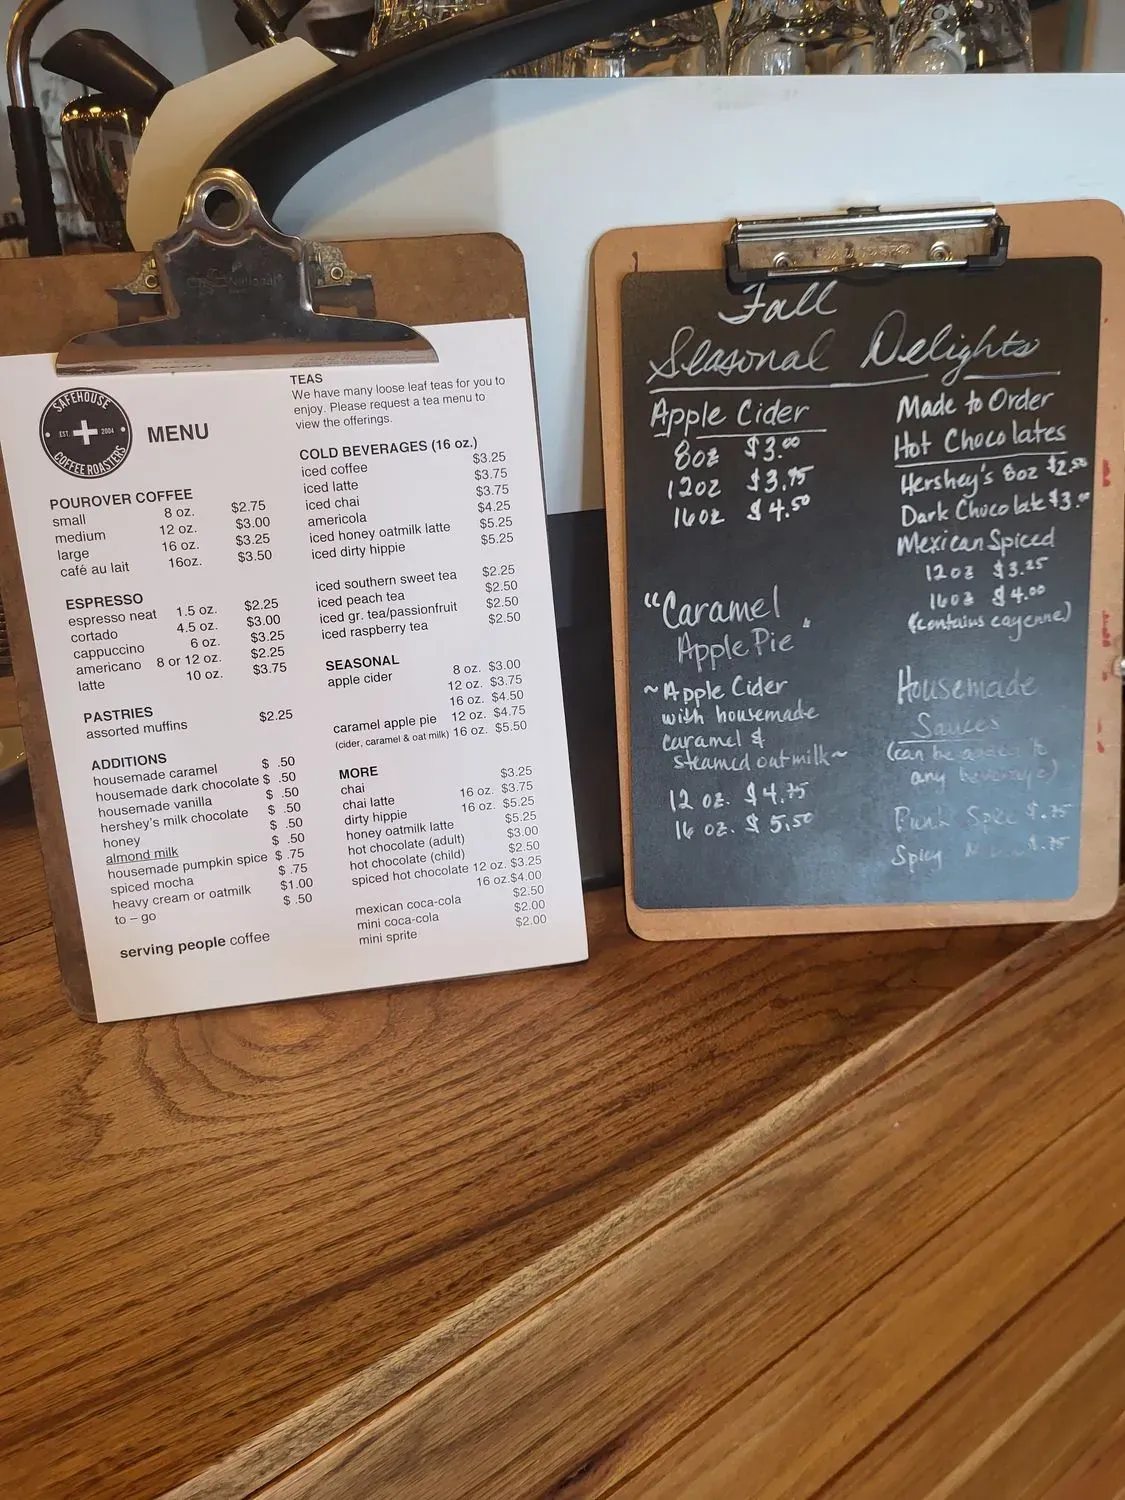 SAFEHOUSE
EST. 2004
COFFEE ROASTERS
MENU
POUROVER COFFEE
small 8 oz. $2.75
medium 12 oz. $3.00
large 16 oz. $3.25
café au lait 16oz. $3.50
ESPRESSO
espresso neat 1.5 oz. $2.25
cortado 4.5 oz. $3.00
cappuccino 6 oz. $3.25
americano 8 or 12 oz. $2.25
latte 10 oz. $3.75
PASTRIES
assorted muffins $2.25
ADDITIONS
housemade caramel $ .50
housemade dark chocolate $ .50
housemade vanilla $ .50
hershey's milk chocolate $ .50
honey $ .50
almond milk $ .50
housemade pumpkin spice $ .75
spiced mocha $ .75
heavy cream or oatmilk $1.00
to – go $ .50
serving people coffee
TEAS
We have many loose leaf teas for you to
enjoy. Please request a tea menu to
view the offerings.
COLD BEVERAGES (16 oz.)
iced coffee $3.25
iced latte $3.75
iced chai $3.75
americola $4.25
iced honey oatmilk latte $5.25
iced dirty hippie $5.25
iced southern sweet tea $2.25
iced peach tea $2.50
iced gr. tea/passionfruit $2.50
iced raspberry tea $2.50
SEASONAL
apple cider 8 oz. $3.00
12 oz. $3.75
16 oz. $4.50
caramel apple pie 12 oz. $4.75
(cider, caramel & oat milk) 16 oz. $5.50
MORE
chai $3.25
chai latte 16 oz. $3.75
dirty hippie 16 oz. $5.25
honey oatmilk latte $5.25
hot chocolate (adult) $3.00
hot chocolate (child) $2.50
spiced hot chocolate 12 oz. $3.25
16 oz.$4.00
mexican coca-cola $2.50
mini coca-cola $2.00
mini sprite $2.00
Fall
Seasonal Delights
Apple Cider
8oz $3.00
12oz $3.75
16oz $4.50
"Caramel
Apple Pie"
~Apple Cider
with housemade
caramel &
steamed oatmilk~
12 oz. $4.75
16 oz. $5.50
Made to Order
Hot Chocolates
Hershey's 8oz $2.50
Dark Chocolate $3.00
Mexican Spiced
12oz $3.25
16oz $4.00
(contains cayenne)
Housemade
Sauces
(can be added to
any beverage)
Spice $.75
Spicy $.75